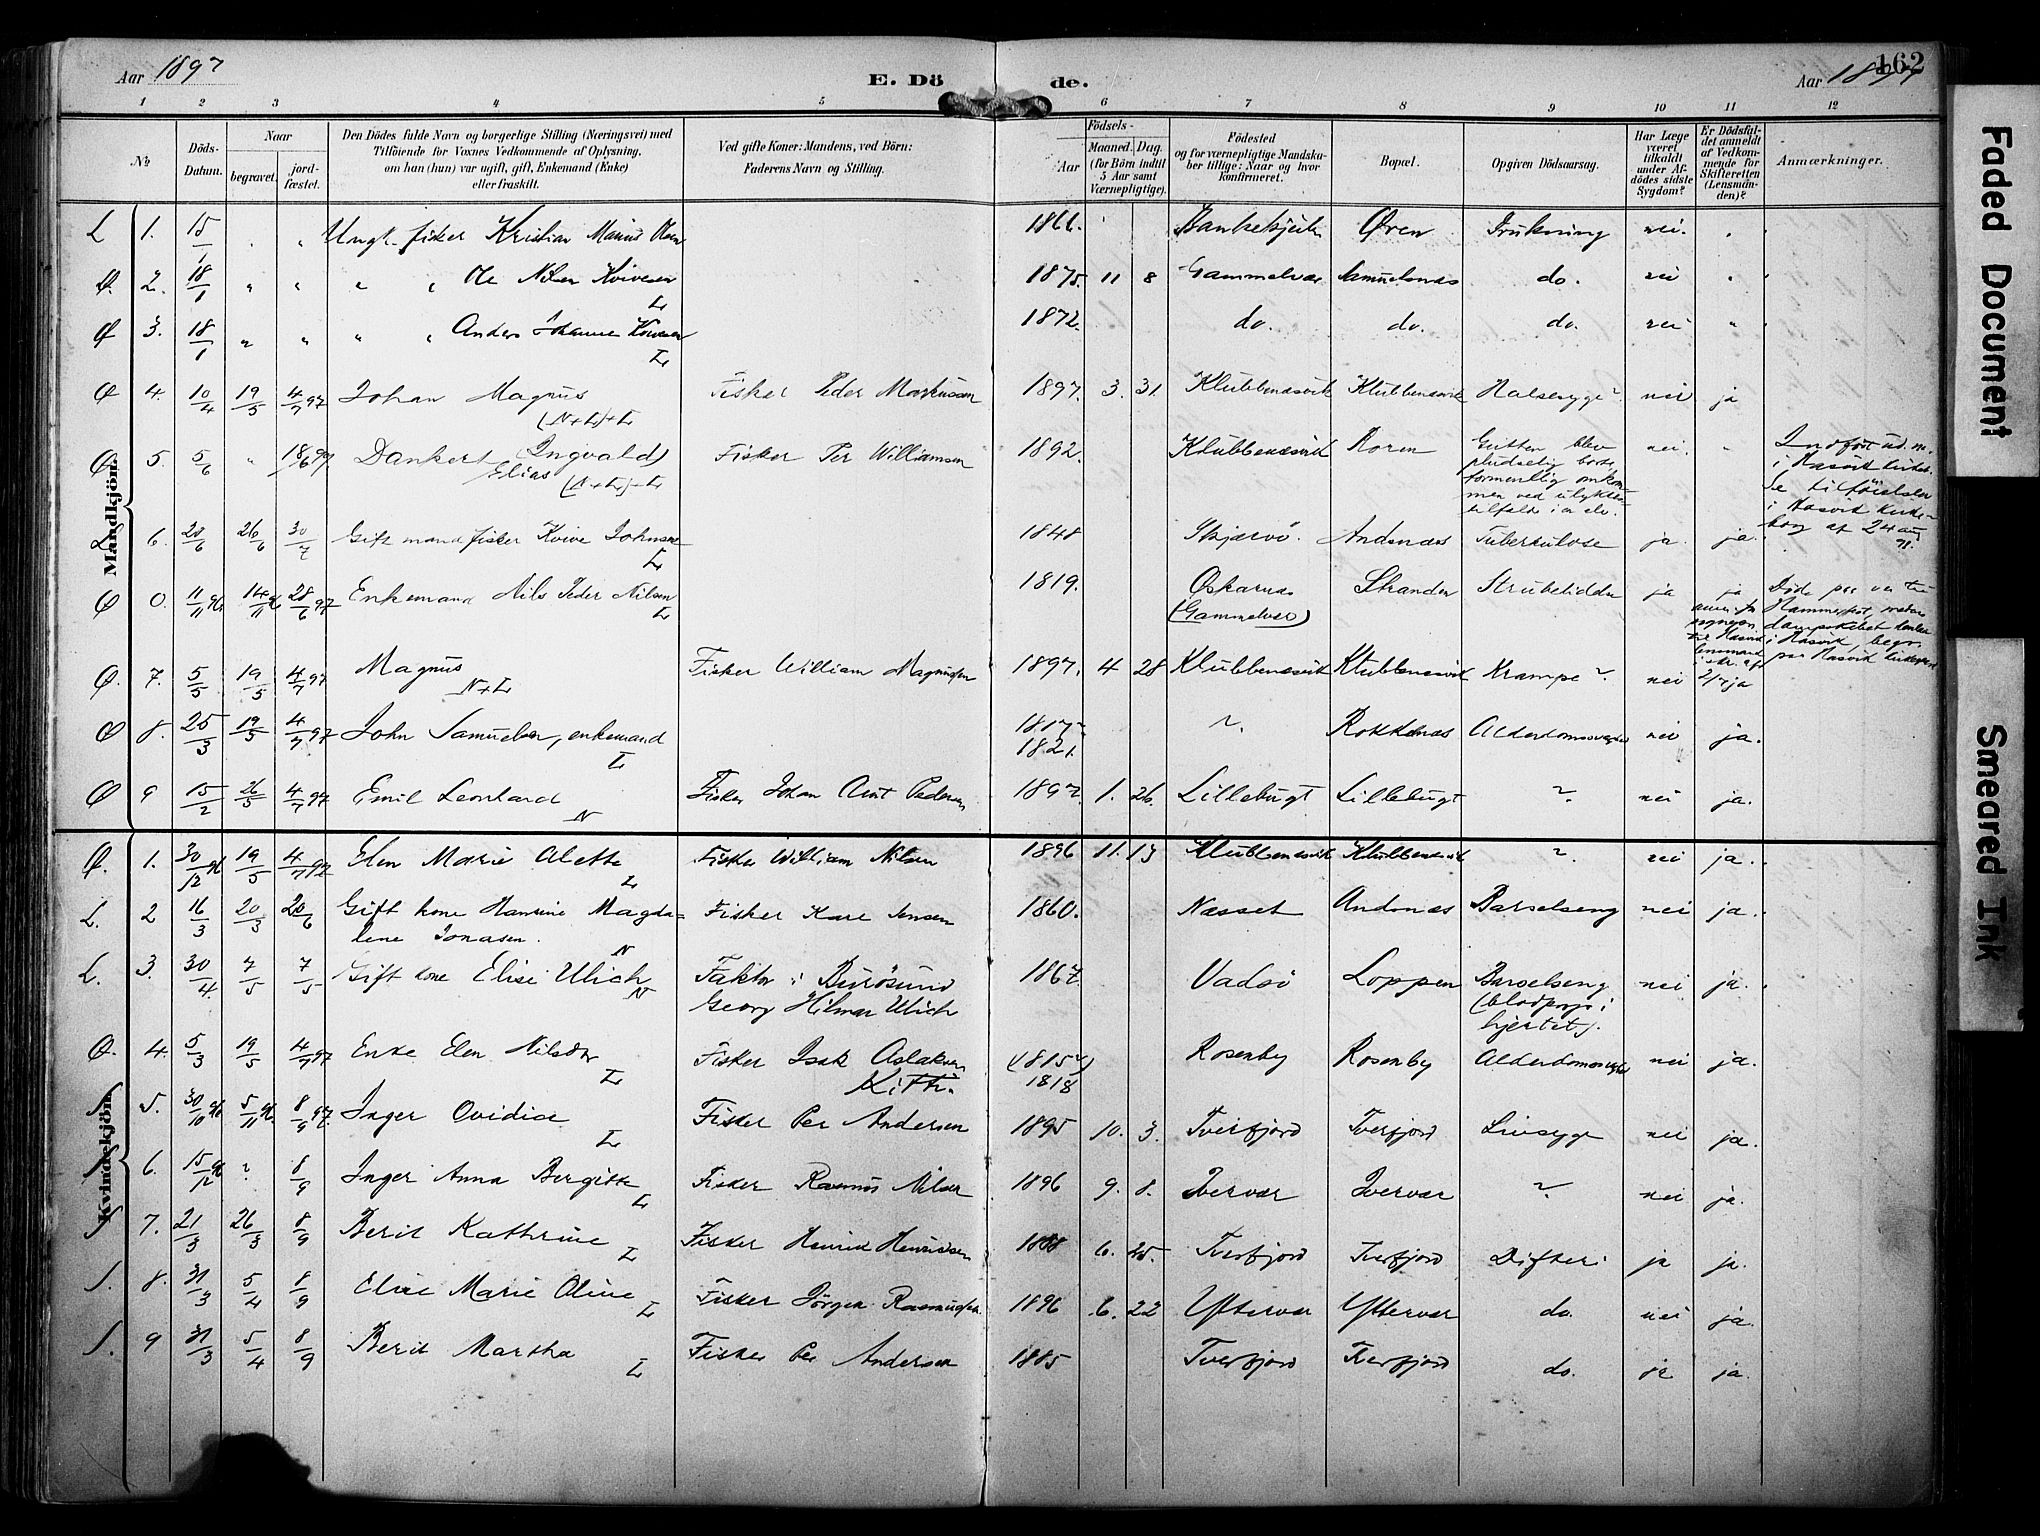 Aar 1897
E. Döde.
162
Aar 1897
1 2 3 4 5 6 7 8 9 10 11 12
No
Döds-Datum.
Naar
begravet.
jord-fæstet.
Den Dödes fulde Navn og borgerlige Stilling (Næringsvei) med
Tilföiende for Voxnes Vedkommende af Oplysning,
om han (hun) var ugift, gift, Enkemand (Enke)
eller fraskilt.
Ved gifte Koner: Mandens, ved Börn:
Faderens Navn og Stilling.
Födsels-
Aar
Maaned. Dag.
(for Börn indtil
5 Aar samt
Værnepligtige).
Födested
og for værnepligtige Mandska-
ber tillige: Naar og hvor
konfirmeret.
Bopæl.
Opgiven Dödsaarsag.
Har Læge
været
tilkaldt
under Af-
dödes sidste
Sygdom?
Er Dödsfal-
det anmeldt
af Vedkom-
mende for
Skifteretten
(Lensman-
den)?
Anmærkninger.
Mandkjön.
L 1. 15/1 " " Ungk. fisker Kristian Marius Olsen 1866. Øren Drukning nei. "
Ø. 2. 18/1 " " " " Ole Nilsen Kvivesen L 1875. 11 8 Gammelvær Samuelsnæs do. nei "
Ø 3. 18/1 " " " " Anders Johannes L 1872. do. do. do. nei "
Ø 4. 10/4 19/5 4/7 97 Johan Magnus (N+L)+L Fisker Peder Markussen 1897. 3. 31. Klubbenæsvik Klubbenæsvik Halssyge? nei ja
Ø 5. 5/6 " 18/6 97 Dankert Ingvald Elias (N+L)+L Fisker Per Williamsen 1892. Klubbenæsvik Roren Gutten blev
pludselig borte,
formentlig omkom-
men ved ulykkes-
tilfælde i en elv. nei. "
Indfört
i Hasvik kirkeb.
Se tilföielsen
i Hasvik kirke-
bog af 24 aug
L 6. 28/6 26/6 30/7 Gift mand fisker Kvive Johnsen L 1848 Skjærvö. Andsnæs Tuberkulose ja. ja.
Ø 0. 11/11 96 14/11 96 28/6 97 Enkemand Nils Peder Nilsen L 1819. Oskarnæs
(Gammelvær) Stranden Strubelidelse ja ja
Döde paa vei til
Hammerfest, medens
dampskibet
i Hasvik, begr.
paa Hasvik kirkegaard
Ø. 7. 5/5 19/5 4/7 97 Magnus N+L Fisker William Magnussen 1897. 4 28 Klubbenæsvik Klubbenæsvik Krampe? nei ja
Ø 8. 25/3 19/5 4/7 97 John Samuelsen, enkemand L 1817?
1821. ? Rokkenæs Alderdomssvaghed nei ja.
Ø 9 15/2 26/5 4/7 97 Emil Leonhard N Fisker Johan Arnt Pedersen 1897. 1. 26. Lillebugt Lillebugt ? nei ja.
Kvindekjön.
Ø. 1. 30/12 96 19/5 4/7 97 Elen Marie Alette L Fisker William Nilsen 1896 11. 13 Klubbenæsvik Klubbenæsvik ?. nei ja.
L. 2 16/3 20/3 20/6 Gift kone Hansine Magda-
lene Jonasen. N Fisker Kare Jensen 1860. Næsset Andsnæs Barselseng nei ja.
L. 3. 30/4. 7/5 7/5 Gift kone Elise Ulich N Faktor i Burösund
Georg Hilmar Ulich 1867. Vadsö Loppen Barselseng
(blodprop i
hjertet). nei ja.
Ø. 4. 5/3 19/5 4/7 97 Enke Elen Nilsdtr L Fisker Isak Aslaksen
Kitti. (1815?)
1818 Rosenby Rosenby Alderdomssvaghed nei ja.
S 5. 30/10 96 5/11 96. 8/9 97. Inger Ovidise L Fisker Per Andersen 1895 10. 3. Tverfjord Tverfjord nei ja.
S 6. 15/12 96 ? 8/9 Inger Anna Bergitte L Fisker Rasmus Nilsen 1896 9. 8. ? nei ja.
S 7. 21/3 26/3 8/9 Berit Kathrine L Fisker Henrik Henriksen 1888 6. 25. Tverfjord Tverfjord Difteri ja ja.
S. 8. 31/3 5/4 8/9 Eline Marie Oline L Fisker Jörgen Rasmussen 1896 6. 22 Yttervær Yttervær do. nei ja.
S. 9 31/3 5/4 8/9 Berit Martha L Fisker Per Andersen 1885 Tverfjord Tverfjord do. ja ja.
Faded Document
Smeared Ink